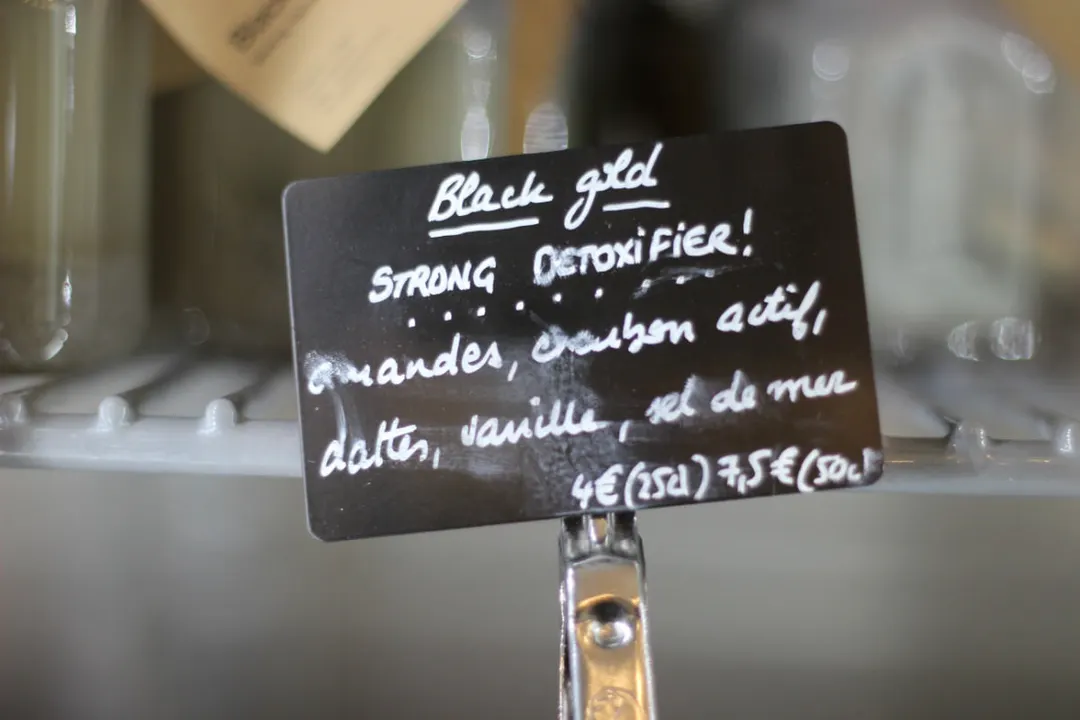 Black gold
STRONG DETOXiFiER!
amandes, charbon actif,
dattes, vanille, sel de mer
4€(25cl) 7,5€(50cl)